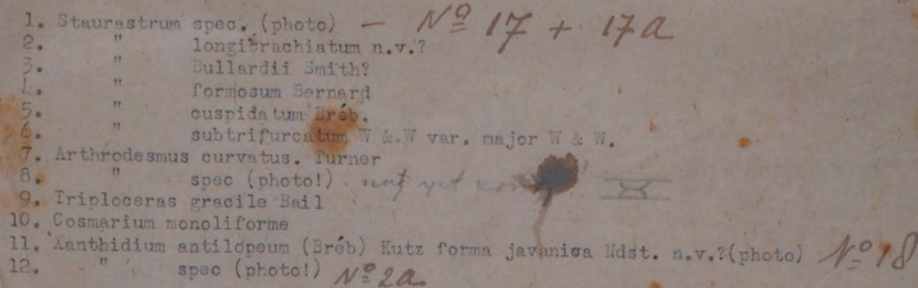 1. Staurastrum spec. (photo) — Nº 17 + 17a
2. " longibrachiatum n.v.?
3. " Bullardii Smith?
4. " formosum Bernard
5. " cuspidatum Bréb.
6. " subtrifurcatum W & W var. major W & W.
7. Arthrodesmus curvatus. Turner
8. " spec (photo!) not yet
9. Triploceras gracile Bail
10. Cosmarium monoliforme
11. Xanthidium antilopeum (Bréb) Kutz forma javanica Ndst. n.v.?(photo) Nº 18
12. " spec (photo!) Nº 2a.